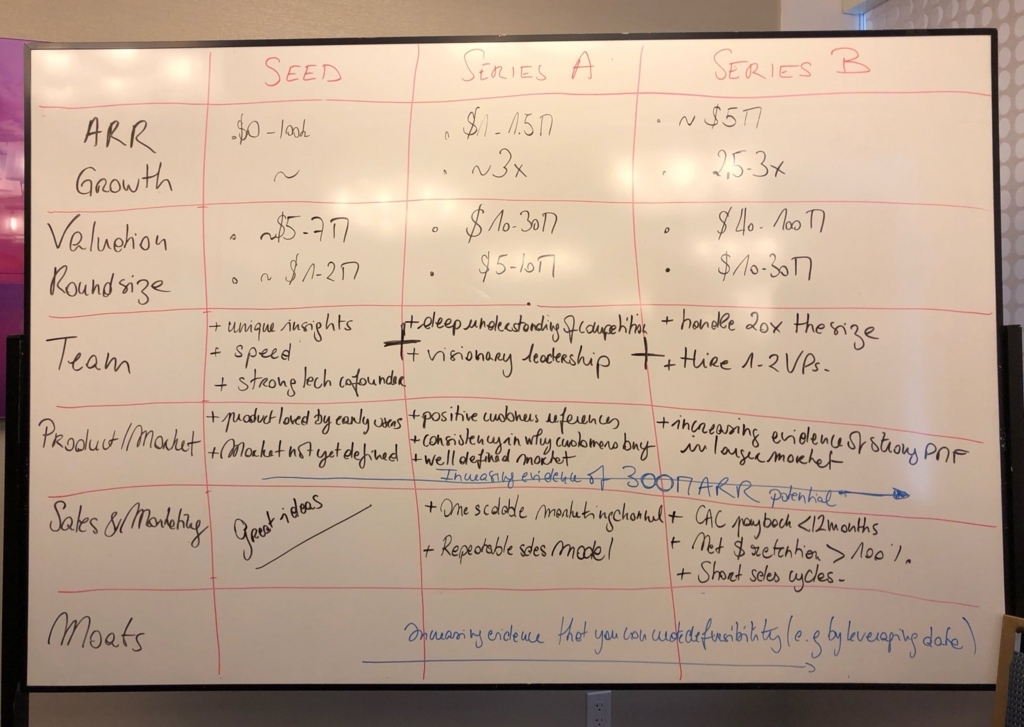 SEED SERIES A SERIES B
ARR .$0-100k . $1-1.5M . ~ $5M
Growth ~ . ~3x . 2,5-3x
Valuation . ~$5-7M . $10-30M . $40-100M
Round size . ~ $1-2M . $5-10M . $10-30M
Team
+ unique insights
+ speed
+ strong tech cofounder
+
+ deep understanding of competition
+ visionary leadership
+
+ handle 20x the size
+ Hire 1-2 VPs-
Product/Market
+ product loved by early users
+ Market not yet defined
+ positive customers references
+ consistency in why customers buy
+ well defined market
+ increasing evidence of strong PMF
in larger market
Increasing evidence of 300M ARR potential
Sales & Marketing
Great ideas
+ One scalable marketing channel
+ Repeatable sales model
+ CAC payback <12 months
+ Net $ retention > 100%.
+ Short sales cycles-
Moats
Increasing evidence that you can create defensibility (e.g by leveraging data)